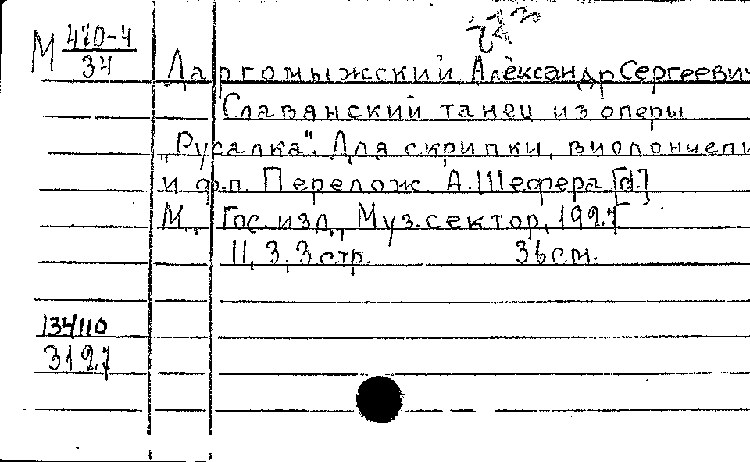 М 470-4
34
Даргомыжский, Александр Сергеевич
Славянский танец из оперы
„Русалка". Для скрипки, виолончели
и ф.п. Перелож. А. Шефера [d]
М., Гос. изд., Муз. сектор, 1927
11, 3, 3 стр. 36 см.
134110
3127